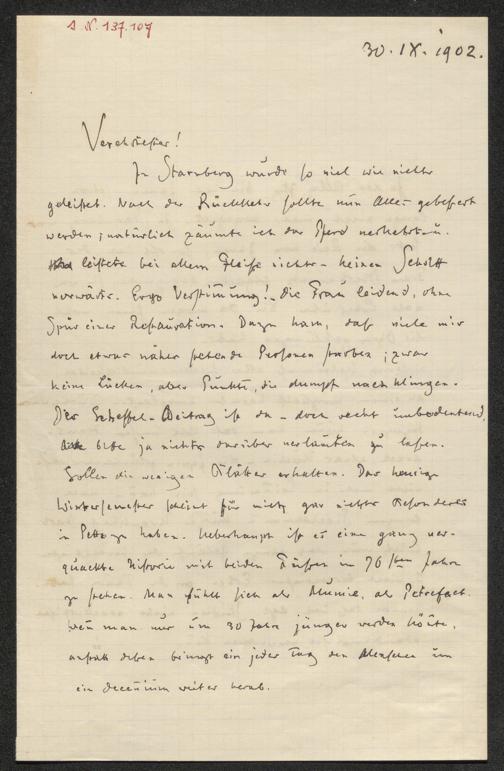 A. N. 137.107
30. IX. 1902.
Verehrtester!
In Starnberg wurde so viel wie nichts
geleistet. Nach der Rückkehr sollte nun Alles gebessert
werden; natürlich zäumte ich das Pferd verkehrt u.
leistete bei allem Fleiße nichts – keinen Schritt
vorwärts. Ergo Verstimmung! – die Frau leidend, ohne
Spur einer Restauration. Dazu kam, daß viele mir
doch etwas näher stehende Personen starben; zwar
keine Lücken, aber Punkte, die dumpf nachklingen.
Der Scheffel-Beitrag ist da – doch recht unbedeutend,
bitte ja nichts darüber verlauten zu lassen.
Sollen die wenigen Blätter erhalten. Das heurige
Wintersemester scheint für mich gar nichts Besonderes
in Petto zu haben. Ueberhaupt ist es eine ganz ver-
quackte Historie mit beiden Füßen im 76 sten Jahre
zu stehen. Man fühlt sich als Mumie, als Petrefact.
Wenn man nur um 30 Jahre jünger werden könnte,
anstatt dessen bringt ein jeder Tag den Menschen um
ein Decennium weiter herab.